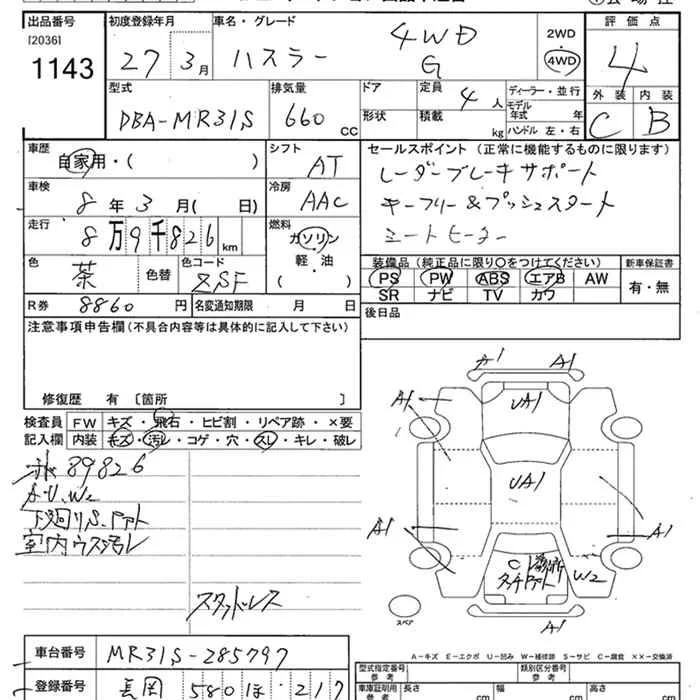 出品番号 初度登録年月 車名・グレード 2WD 評価点
[2036]
1143 27 3月 ハスラー 4WD G 4WD 4
型式 排気量 ドア 定員 4人 ディーラー・並行 外装 内装
モデル 年式 年
DBA-MR31S 660 CC 形状 積載 kg ハンドル 左・右 C B
車歴 シフト セールスポイント (正常に機能するものに限ります)
自家用・( ) AT レーダーブレーキサポート
車検 冷房
8年3月( 日) AAC キーフリー&プッシュスタート
走行 燃料
8万9千826km ガソリン シートヒーター
軽・油
色 色替 色コード ( ) 装備品 (純正品に限り○をつけてください) 新車保証書
茶 ZSF PS PW ABS エアB AW 有・無
SR ナビ TV カワ
R券 8860円 名変通知期限 月 日 後日品
注意事項申告欄 (不具合内容等は具体的に記入して下さい)
修復歴 有 〔箇所 〕
検査員 FW キズ・飛石・ヒビ割・リペア跡・×要
記入欄 内装 キズ・汚レ・コゲ・穴・スレ・キレ・破レ
89826
A.U.W2
下回りS.
室内ウス汚レ
スタッドレス
A1 A1
A1 UA1 A1
UA1
A1 A1
C W2
A1
スペア
A-キズ E-エクボ U-凹み W-補修跡 S-サビ C-腐食 ××-交換済
車台番号 MR31S-285797 型式指定番号 参考 類別区分番号 参考
登録番号 長岡 580 ほ 217 車庫証明用 参考 長さ cm 幅 cm 高さ cm